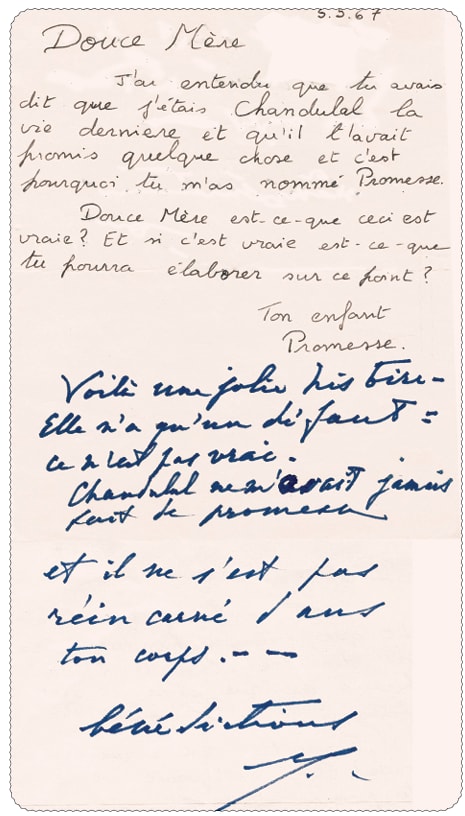 5.5.67
Douce Mère
J'ai entendu que tu avais
dit que j'étais Chandulal la
vie derniere et qu'il t'avait
promis quelque chose et c'est
pourquoi tu m'as nommé Promesse.
Douce Mère est-ce-que ceci est
vraie? Et si c'est vraie est-ce-que
tu pourra élaborer sur ce point?
Ton enfant
Promesse.
Voilà une jolie histoire -
Elle n'a qu'un défaut =
ce n'est pas vrai.
Chandulal ne m'avait jamais
fait de promesse
et il ne s'est pas
réincarné dans
ton corps. - -
bénédictions